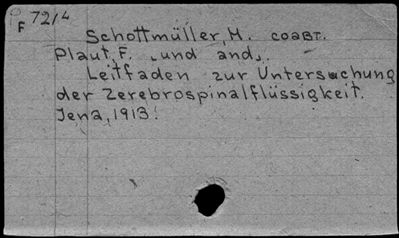 F 72/4
Schottmüller, H. соавт.
Plaut, F. "und and".
Leitfaden zur Untersuchung
der Zerebrospinalflüssigkeit.
Jena, 1913.